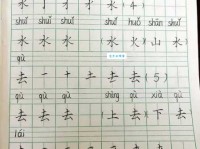 亅 才 水 水 (4)
shuǐ shuǐ shuǐ huǒ shān shuǐ
水 水 水 (水 火)(山 水)
qù
去 一 十 土 去 去 (5)
qù qù qù shàng qù xià qù
去 去 去 (上 去)(下 去)
lái